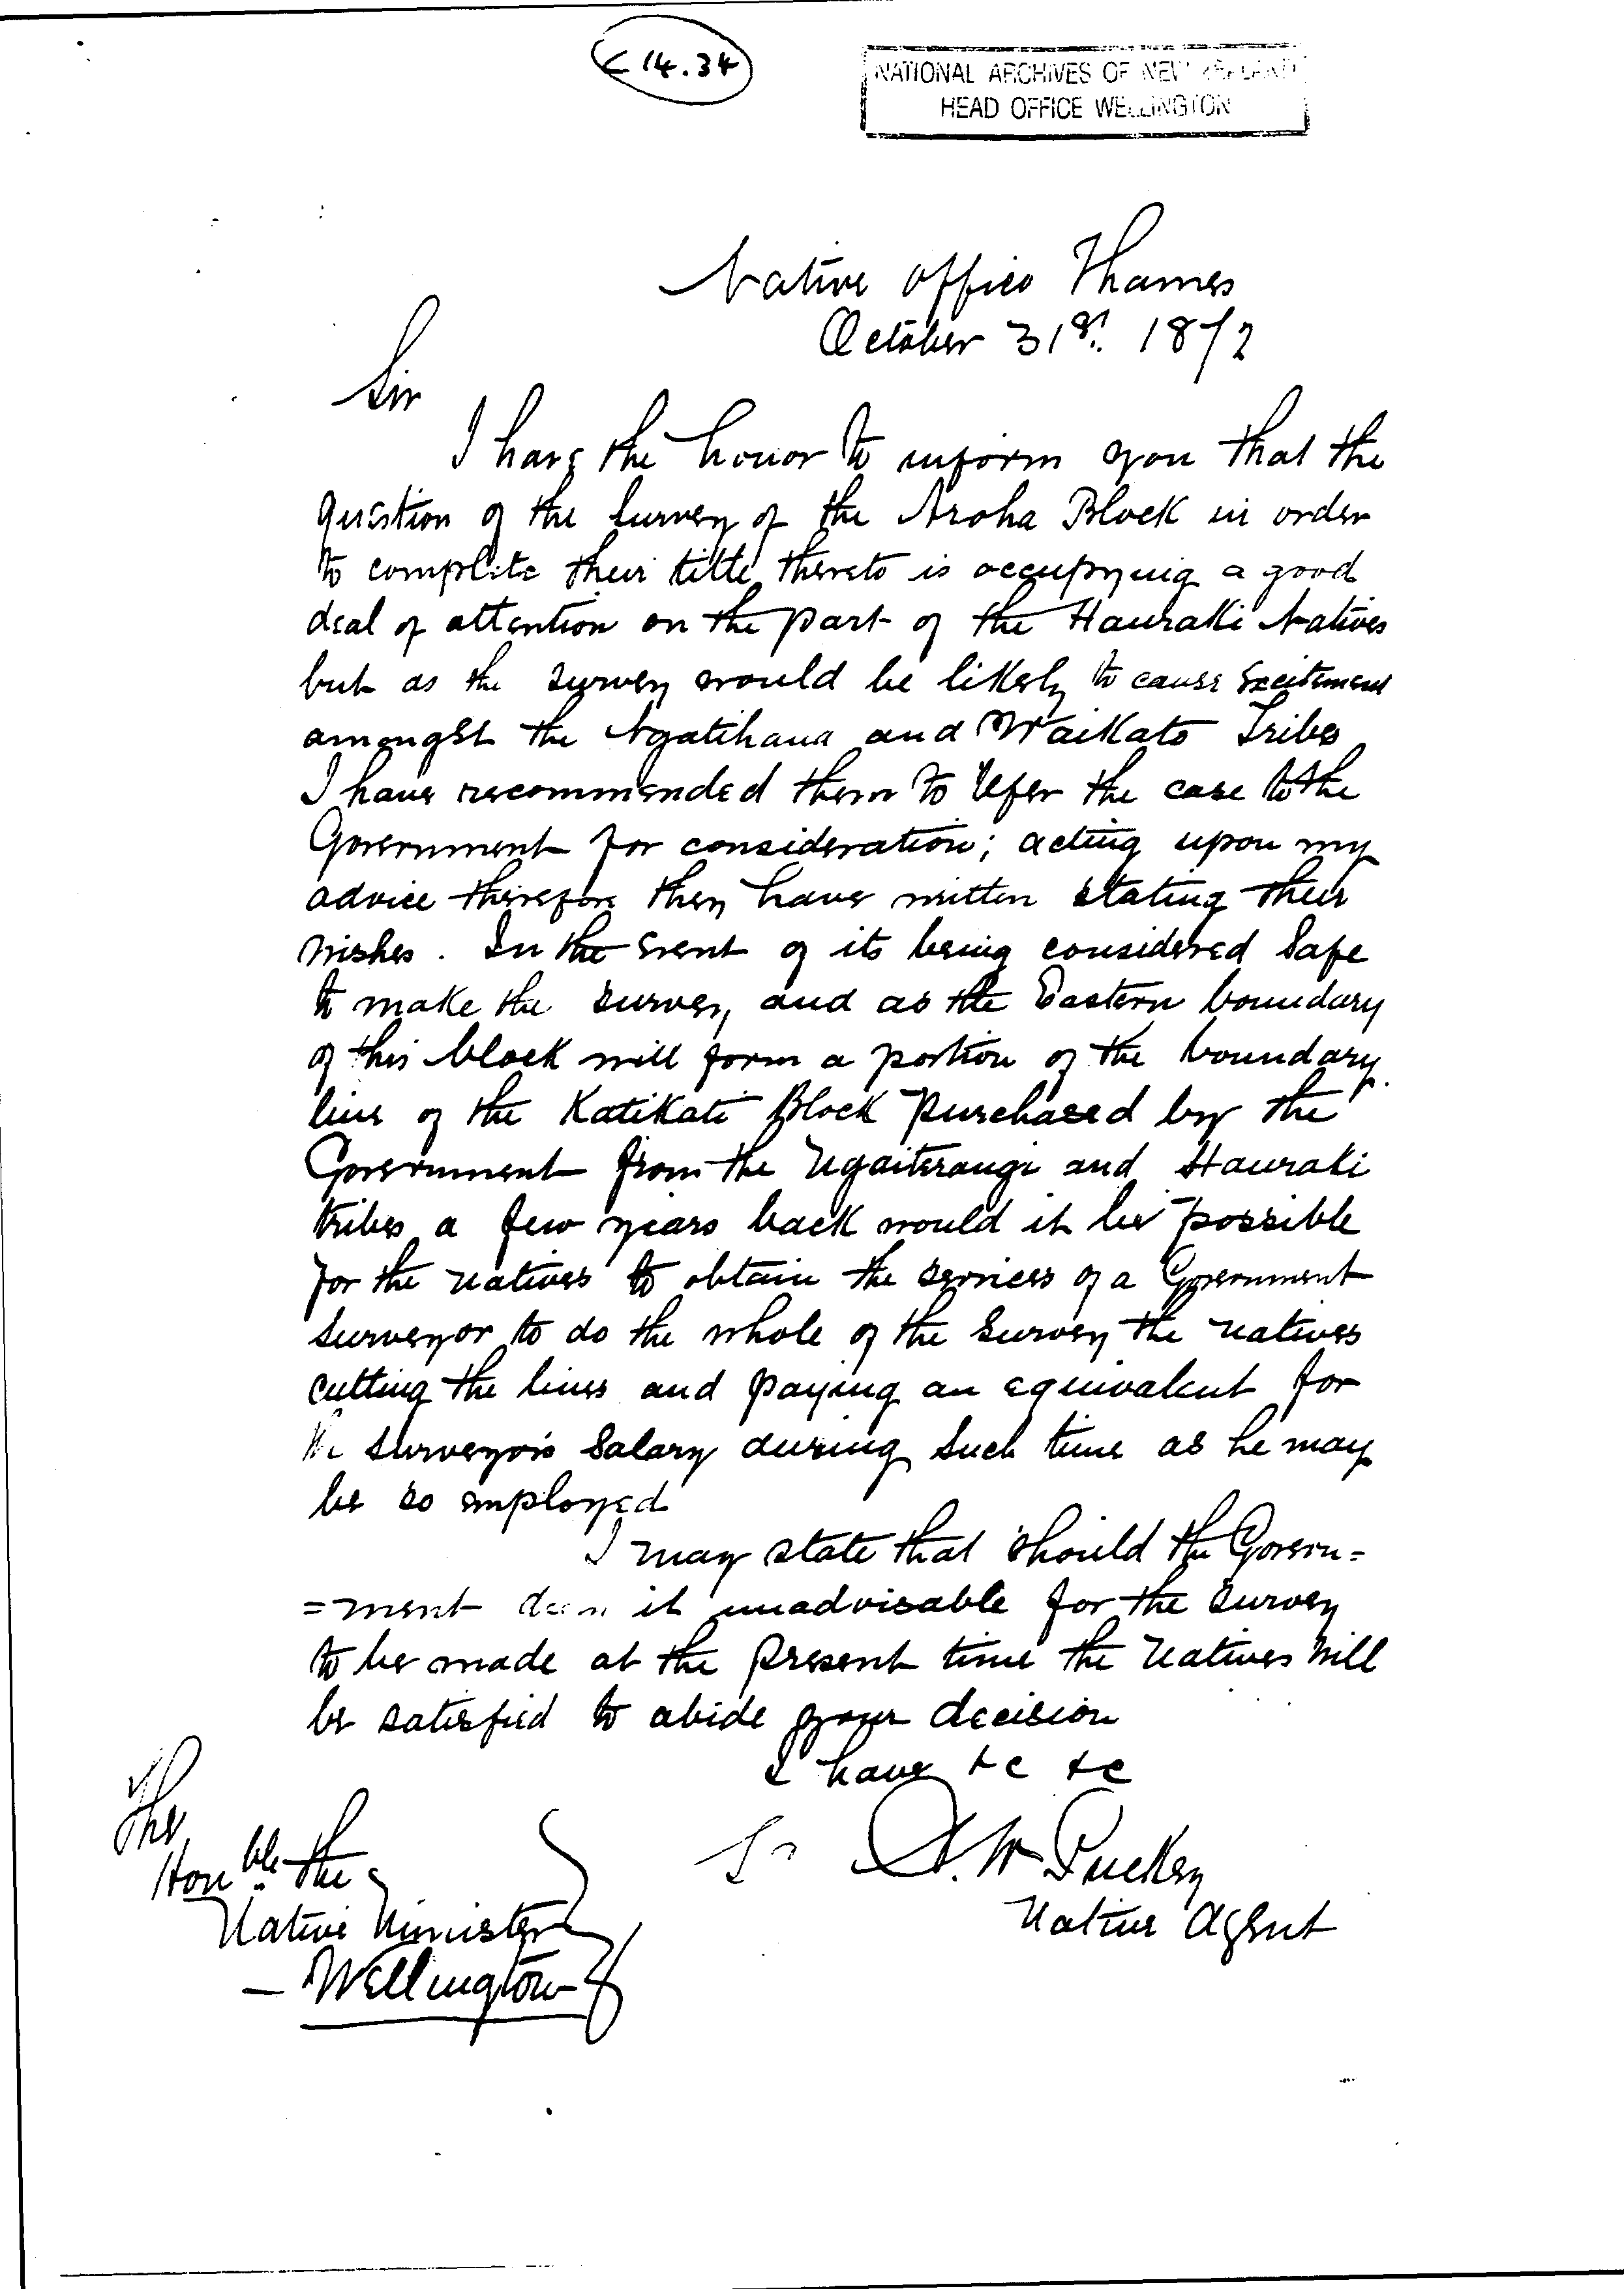 < 14.34
NATIONAL ARCHIVES OF NEW ZEALAND
HEAD OFFICE WELLINGTON
Native Office Thames
October 31st. 1872
Sir
I have the honor to inform you that the
question of the Survey of the Aroha Block in order
to complete their title thereto is occupying a good
deal of attention on the part of the Hauraki Natives
but as the survey would be likely to cause excitement
amongst the Ngatihaua and Waikato Tribes
I have recommended them to refer the case to the
Government for consideration; acting upon my
advice therefore they have written stating their
wishes. In the event of its being considered safe
to make the survey, and as the Eastern boundary
of this block will form a portion of the boundary
line of the Katikati Block purchased by the
Government from the Ngaiterangi and Hauraki
tribes a few years back would it be possible
for the natives to obtain the services of a Government
Surveyor to do the whole of the Survey the natives
cutting the lines and paying an equivalent for
the surveyors Salary during such time as he may
be so employed
I may state that should the Govern=
=ment deem it unadvisable for the survey
to be made at the present time the Natives will
be satisfied to abide your decision
I have &c &c
The
Honble. the
Native Minister
- Wellington
E. W. Puckey
Native Agent